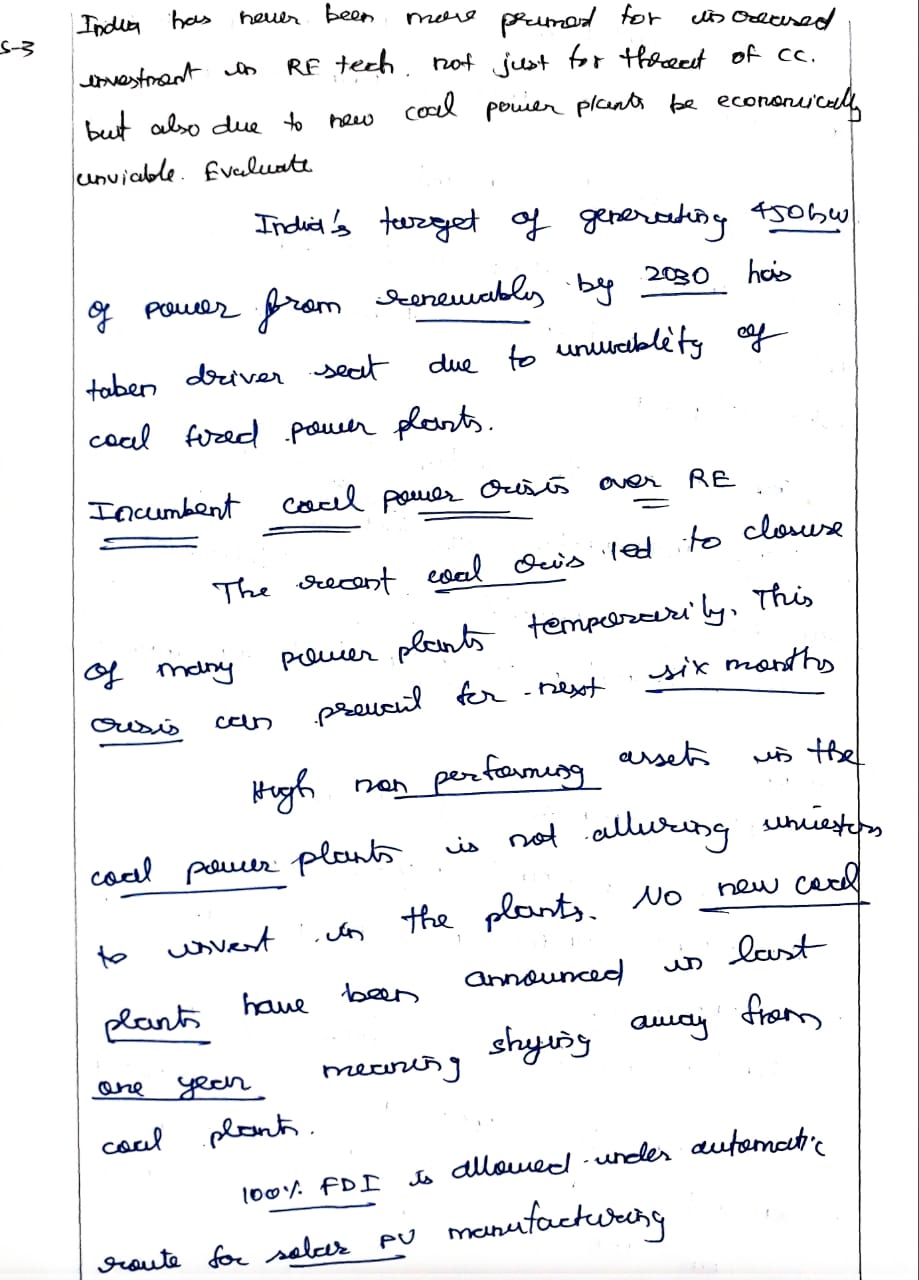 S-3
India has never been more primed for increased
investment in RE tech. not just for threat of CC.
but also due to new coal power plants be economically
unviable. Evaluate
India's target of generating 450 GW
of power from renewables by 2030 has
taken driver seat due to unviablity of
coal fired power plants.
Incumbent coal power crisis over RE
The recent coal crisis led to closure
of many power plants temporarily. This
crisis can prevail for next six months
High non performing assets in the
coal power plants is not alluring investors
to invest in the plants. No new coal
plants have been announced in last
one year meaning shying away from
coal plants.
100% FDI is allowed under automatic
route for solar PV manufacturing